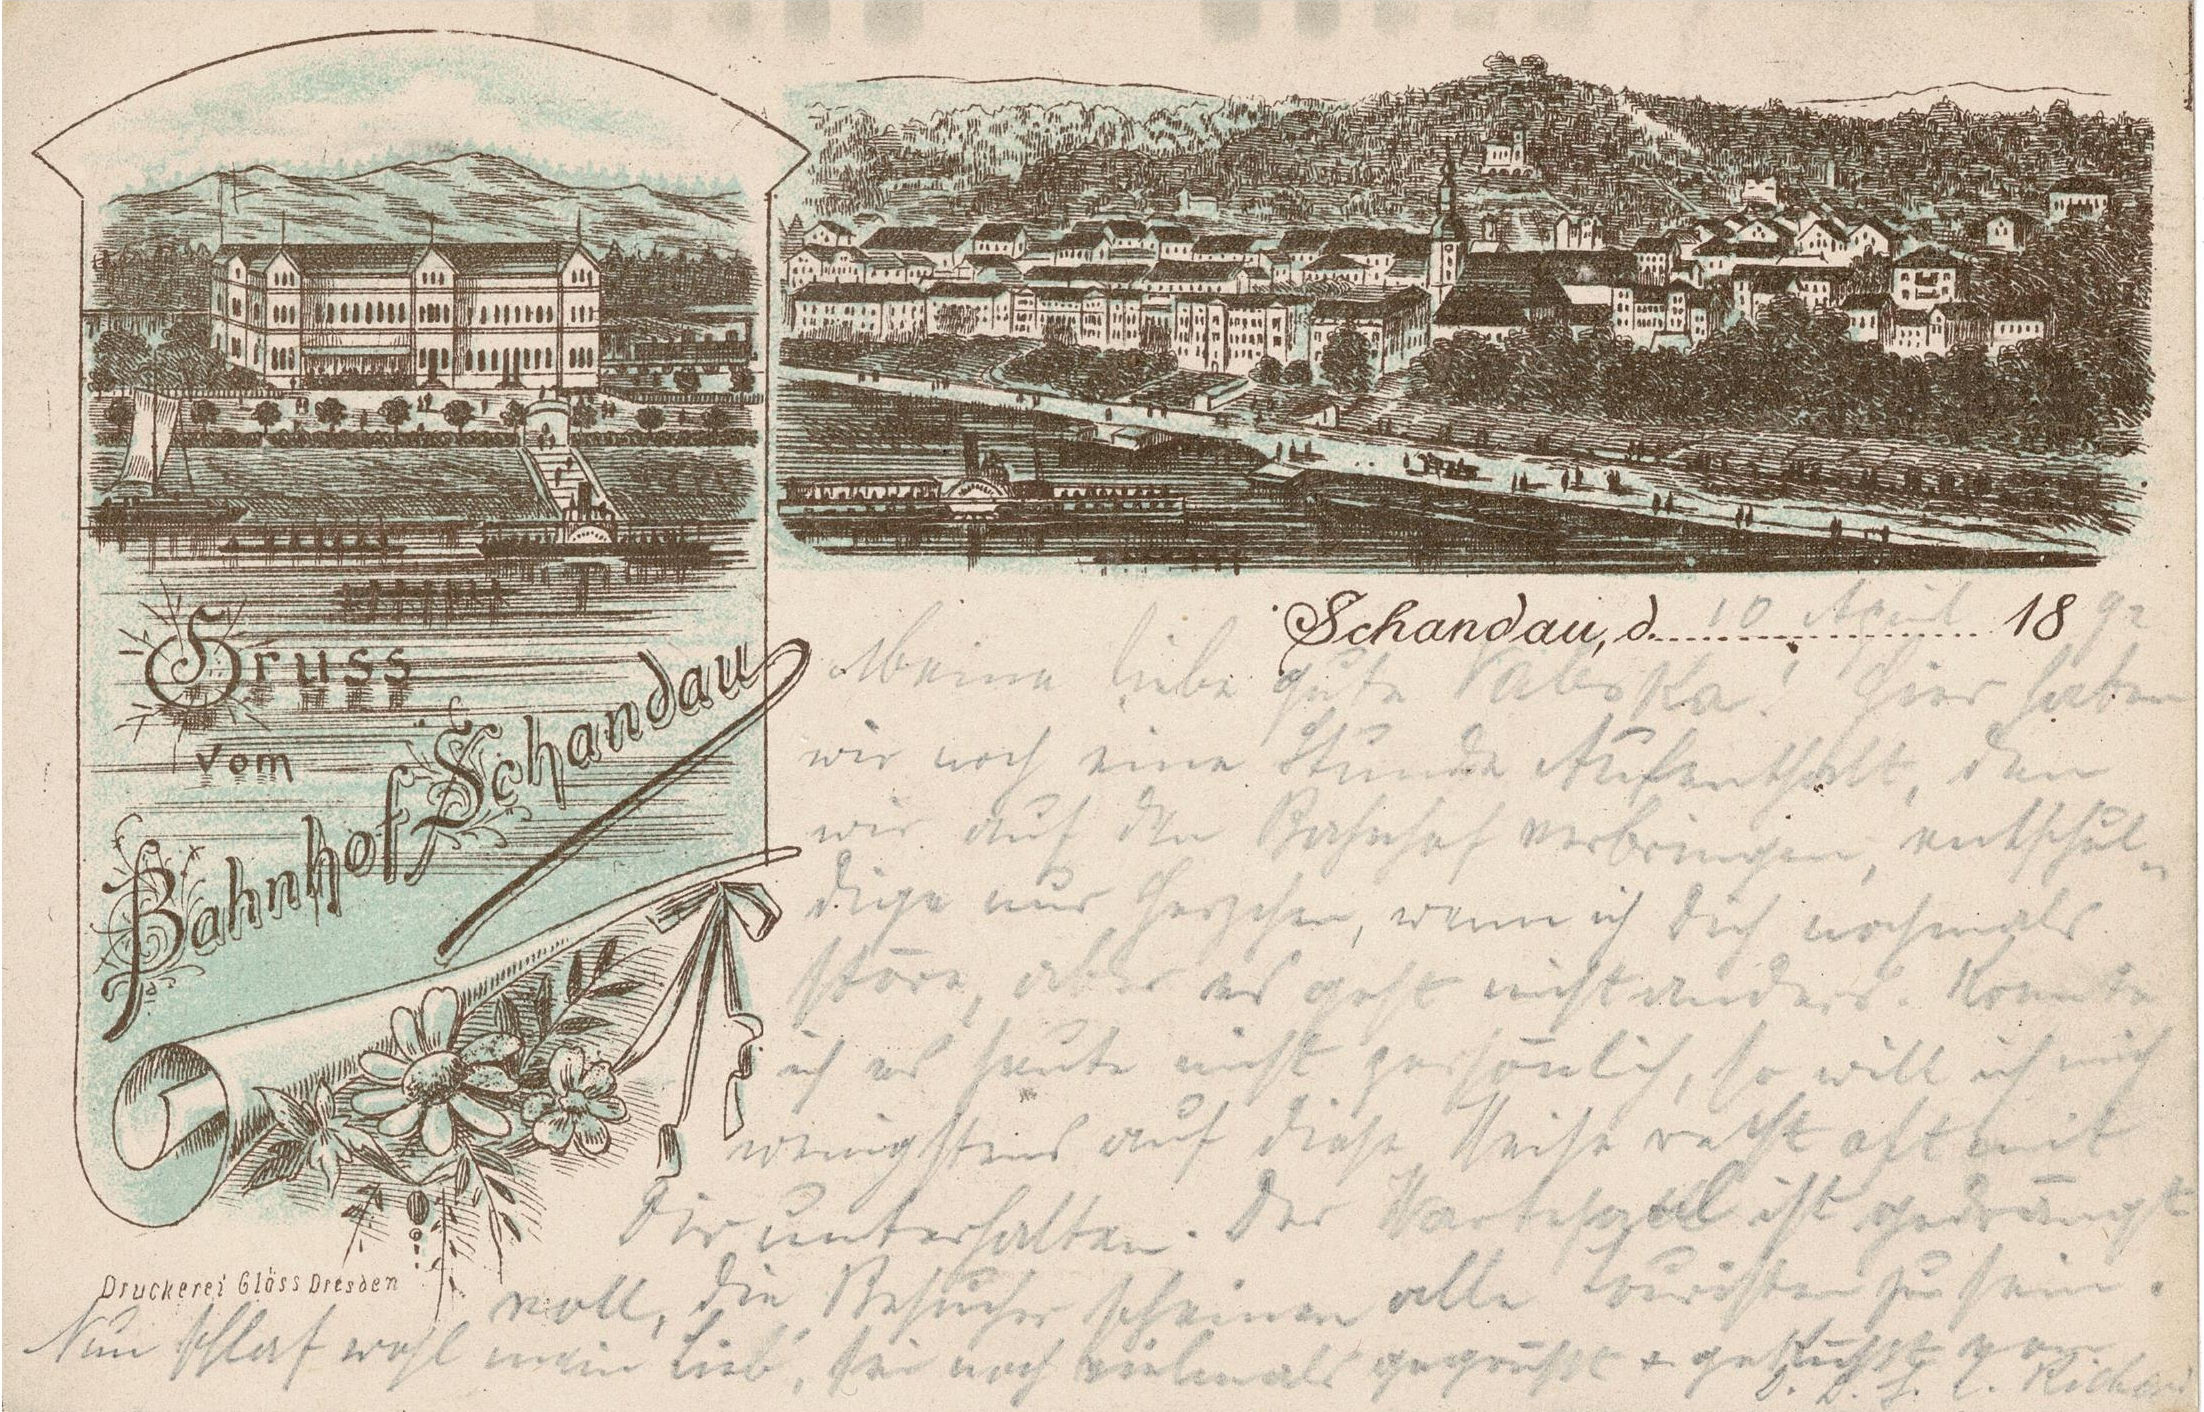 Gruss
vom
Bahnhof Schandau
Druckerei Gläss Dresden
Schandau, d. 10 April 1892
Meine liebe gute Valeska! Hier haben
wir noch eine Stunde Aufenthalt, den
wir auf den Bahnhof verbringen, entschul-
dige nur Herzchen, wenn ich Dich nochmals
störe, aber es geht nicht anders. Konnte
ich es heute nicht persönlich, so will ich mich
wenigstens auf diese Weise recht oft mit
Dir unterhalten. Der Wartesaal ist gedrängt
voll, die Besucher scheinen alle Touristen zu sein.
Nun schlaf wohl mein Lieb, sei noch vielmals gegrüßt + geküßt von
Richard